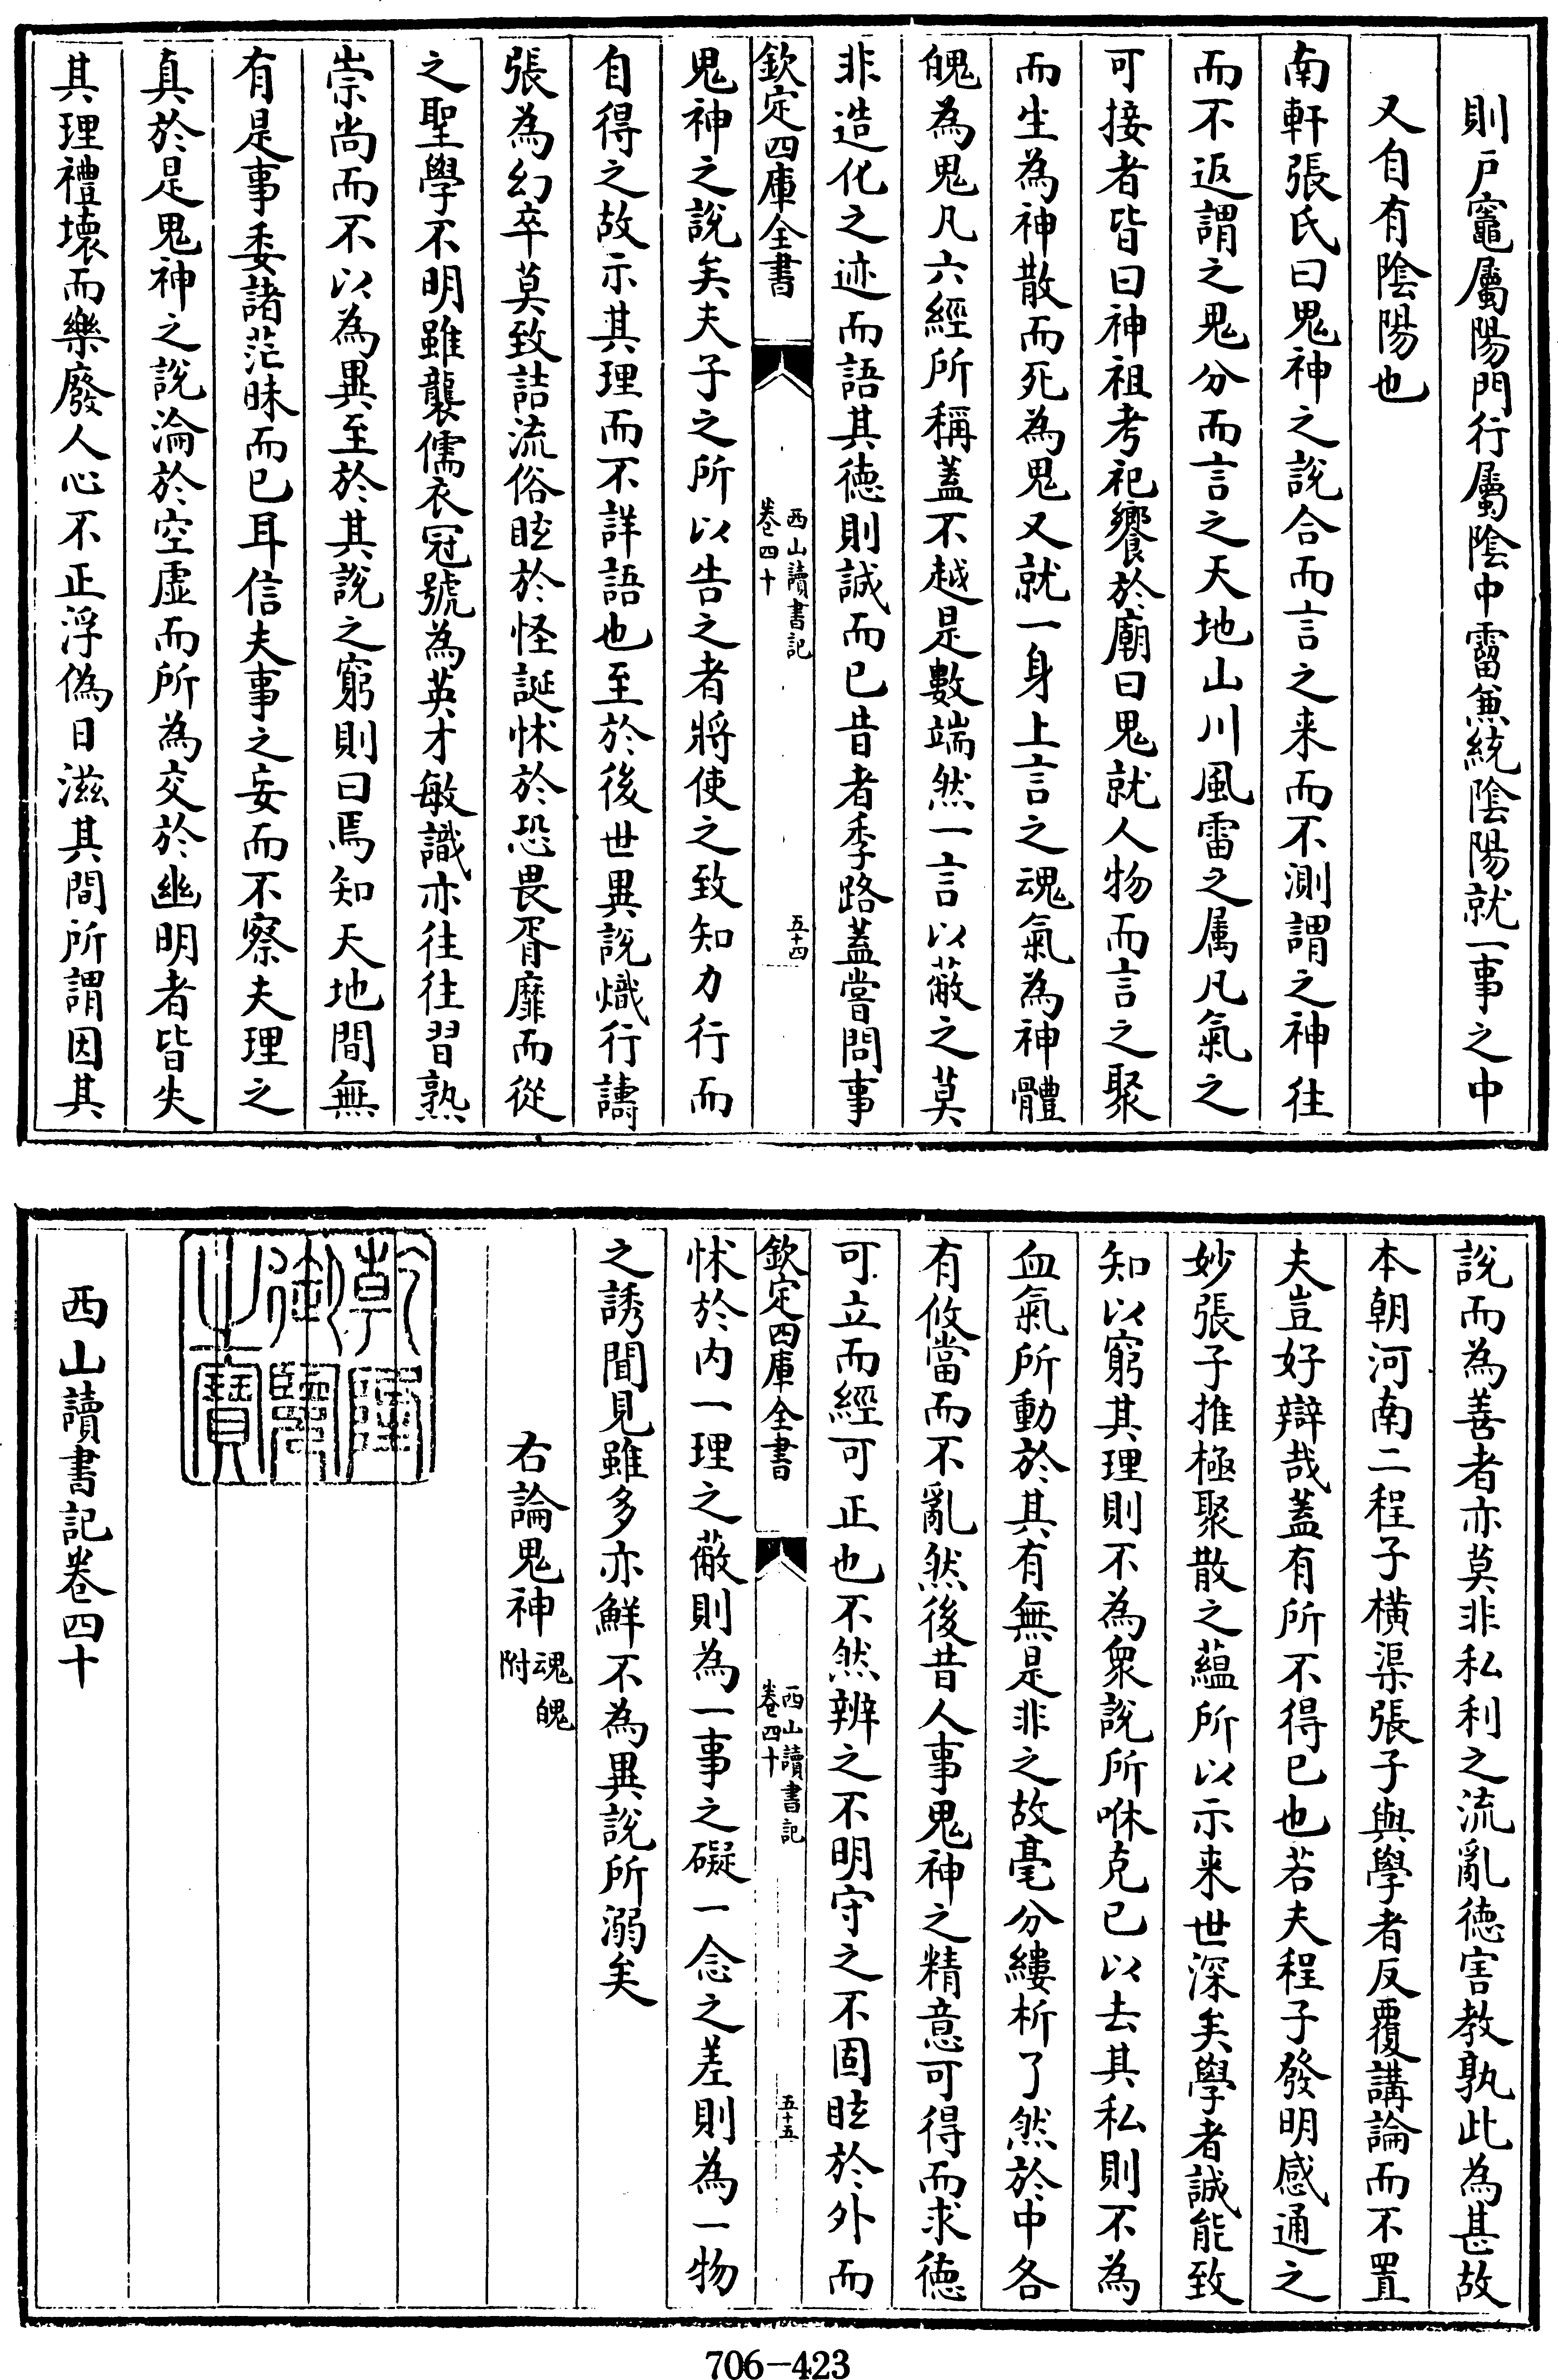 則戶竈屬陽門行屬陰中霤兼統陰陽就一事之中
又自有陰陽也
南軒張氏曰鬼神之說合而言之来而不測謂之神往
而不返謂之鬼分而言之天地山川風雷之属凡氣之
可接者皆曰神祖考祀饗於廟曰鬼就人物而言之聚
而生為神散而死為鬼又就一身上言之魂氣為神體
魄為鬼凡六經所稱蓋不越是數端然一言以蔽之莫
非造化之迹而語其徳則誠而已昔者季路蓋嘗問事
欽定四庫全書
西山讀書記
卷四十
五十四
鬼神之說矣夫子之所以告之者將使之致知力行而
自得之故示其理而不詳語也至於後世異說熾行譸
張為幻卒莫致詰流俗眩於怪誕怵於恐畏胥靡而從
之聖學不明雖襲儒衣冠號為英才敏識亦往往習熟
崇尚而不以為異至於其說之窮則曰焉知天地間無
有是事委諸茫昧而已耳信夫事之妄而不察夫理之
真於是鬼神之說淪於空虛而所為交於幽明者皆失
其理禮壊而樂廢人心不正浮偽日滋其間所謂因其
說而為善者亦莫非私利之流亂徳害教孰此為甚故
本朝河南二程子橫渠張子與學者反覆講論而不置
夫豈好辯哉蓋有所不得已也若夫程子發明感通之
妙張子推極聚散之蘊所以示来世深矣學者誠能致
知以窮其理則不為衆說所咻克已以去其私則不為
血氣所動於其有無是非之故毫分縷析了然於中各
有攸當而不亂然後昔人事鬼神之精意可得而求徳
可立而經可正也不然辨之不明守之不固眩於外而
欽定四庫全書
西山讀書記
卷四十
五十五
怵於内一理之蔽則為一事之礙一念之差則為一物
之誘聞見雖多亦鮮不為異說所溺矣
右論鬼神魂魄附
乾隆御覽之寶
西山讀書記卷四十
706-423